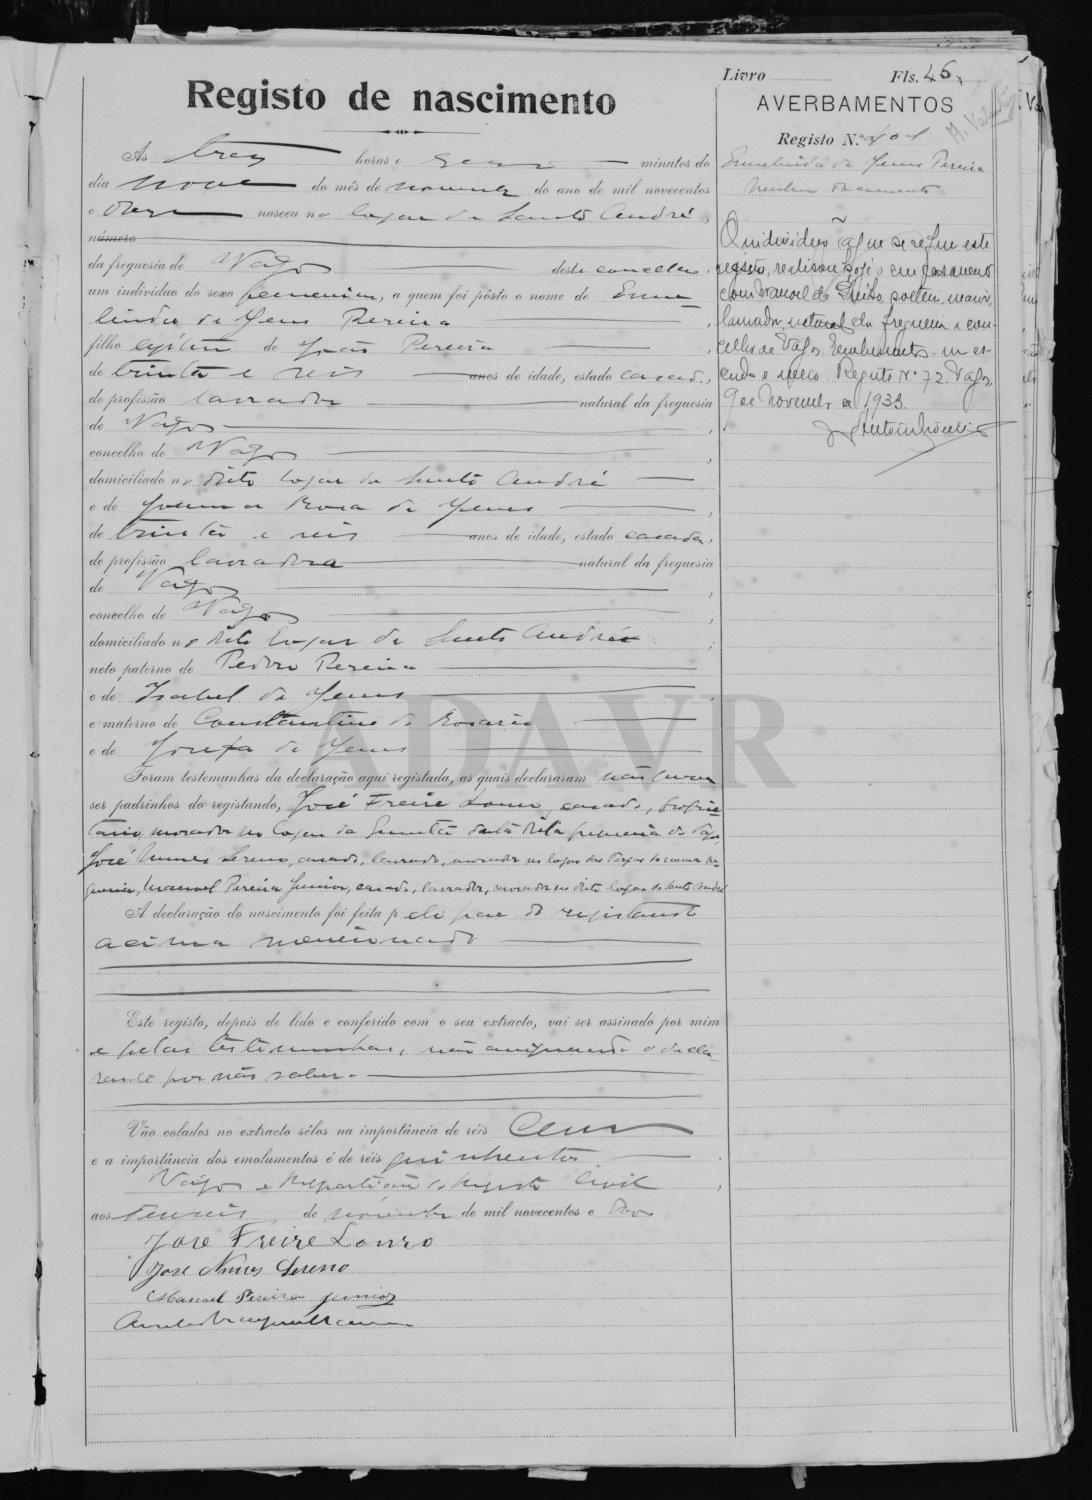 Livro Fls. 46
Registo de nascimento
AVERBAMENTOS
Registo N.º 401
Ermelinda de Jesus Pereira
Nenhum documento
Às tres horas e minutos do
dia nove do mês de novembro do ano de mil novecentos
e doze nasceu no logar de Santo André,
número
da freguesia de Vagos deste concelho,
um individuo do sexo femenino, a quem foi pôsto o nome de Erme
linda de Jesus Pereira
filho de João Pereira
de trinta e seis anos de idade, estado casado,
de profissão lavrador natural da freguesia
de Vagos,
concelho de Vagos,
domiciliado no dito logar de Santo André
e de Joanna Rosa de Jesus,
de trinta e seis anos de idade, estado casada,
de profissão lavradora natural da freguesia
de Vagos,
concelho de Vagos,
domiciliado no dito logar de Santo André;
neto paterno de Pedro Pereira
e de Isabel de Jesus,
e materno de Constantino do Rosario
e de Josefa de Jesus
Foram testemunhas da declaração aqui registada, as quais declararam não querer
ser padrinhos do registando, José Freire Louro, casado, proprie-
tario, morador no logar da desta dita freguesia de Vagos,
José Nunes Sereno, casado, lavrador, morador no logar das da mesma fre-
guesia, Manuel Pereira Junior, casado, lavrador, morador no dito logar de Santo André
A declaração do nascimento foi feita pelo pae do registando
acima mencionado
Este registo, depois de lido e conferido com o seu extracto, vai ser assinado por mim
e pelas testemunhas, não assignando o decla-
rante por não saber.
Vão colados no extracto sêlos na importância de réis Cem
e a importância dos emolumentos é de réis quinhentos
Vagos e Repartição do Registo Civil,
aos de novembro de mil novecentos e doze
Jose Freire Louro
Jose Nunes Sereno
Manuel Pereira Junior
O individuo a que se refere este
registo, realisou hoje o seu casamento
com Manoel de solteiro, maior,
lavrador, natural da freguesia e con-
celho de Vagos. Emolumentos um es-
cudo e Registo Nº 72. Vagos
9 de Novembro de 1933.
ADAVR